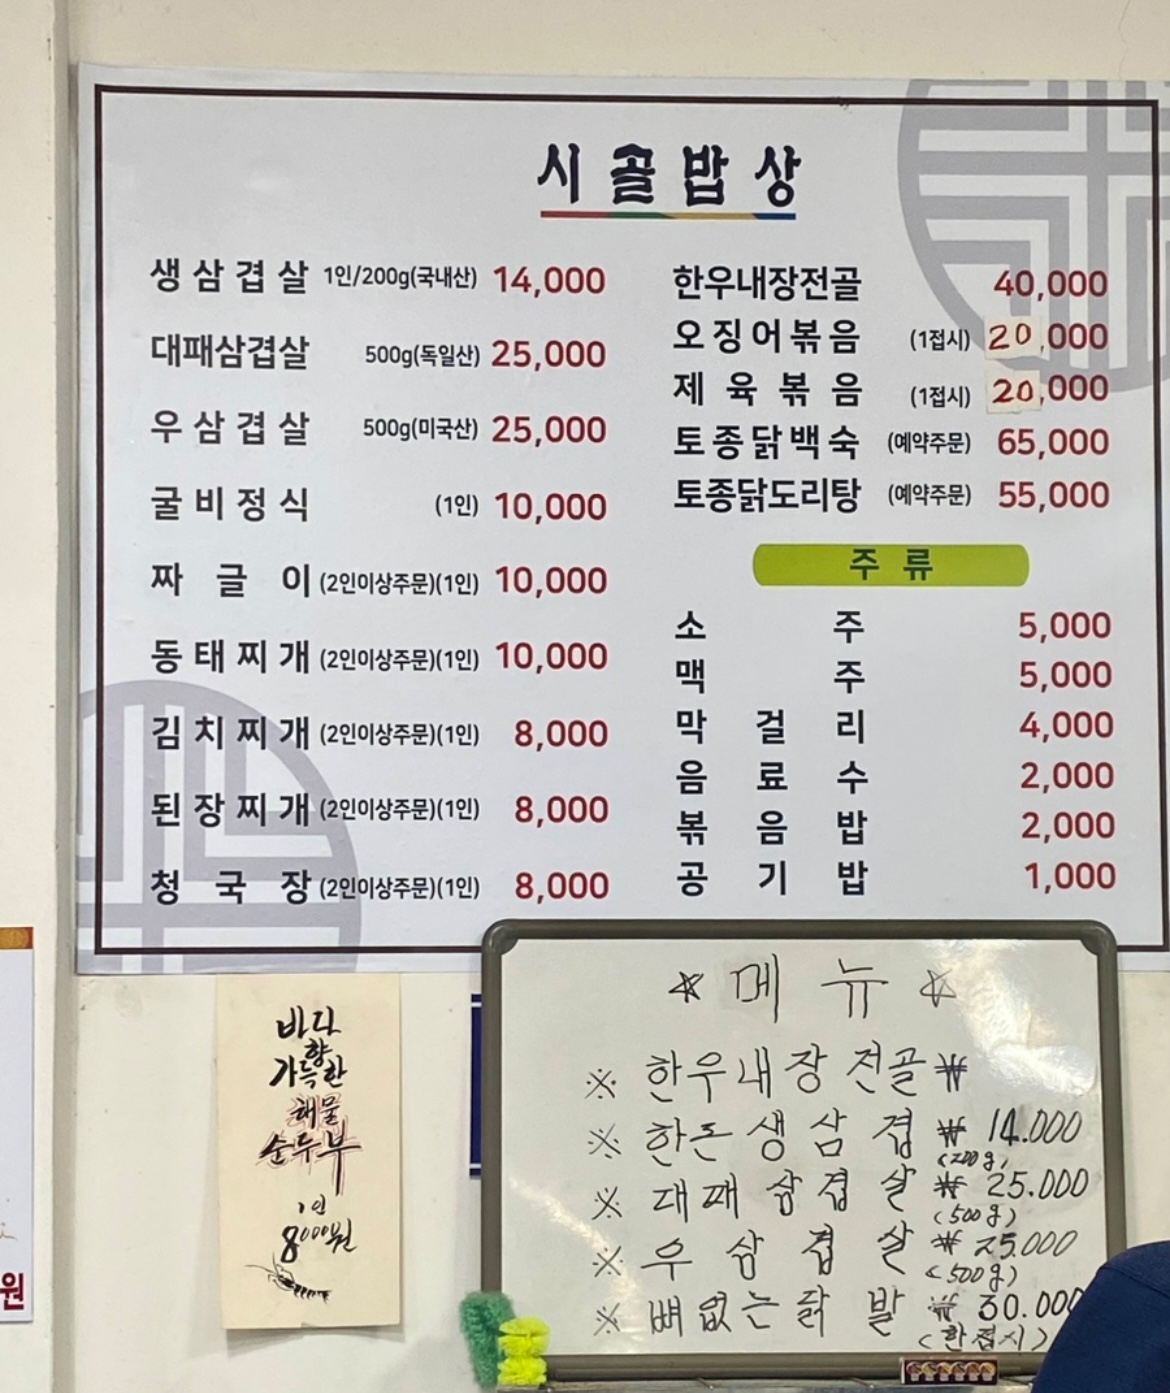 시골밥상
생삼겹살 1인/200g(국내산) 14,000
대패삼겹살 500g(독일산) 25,000
우삼겹살 500g(미국산) 25,000
굴비정식 (1인) 10,000
짜글이 (2인이상주문)(1인) 10,000
동태찌개 (2인이상주문)(1인) 10,000
김치찌개 (2인이상주문)(1인) 8,000
된장찌개 (2인이상주문)(1인) 8,000
청국장 (2인이상주문)(1인) 8,000
한우내장전골 40,000
오징어볶음 (1접시) 20,000
제육볶음 (1접시) 20,000
토종닭백숙 (예약주문) 65,000
토종닭도리탕 (예약주문) 55,000
주류
소주 5,000
맥주 5,000
막걸리 4,000
음료수 2,000
볶음밥 2,000
공기밥 1,000
바다
향
가득한
해물
순두부
1인
8000원
원
☆ 메뉴 ☆
※ 한우내장전골 ₩
※ 한돈생삼겹 ₩ 14.000
(200g)
※ 대패삼겹살 ₩ 25.000
(500g)
※ 우삼겹살 ₩ 25.000
(500g)
※ 뼈없는닭발 ₩ 30.000
(한접시)